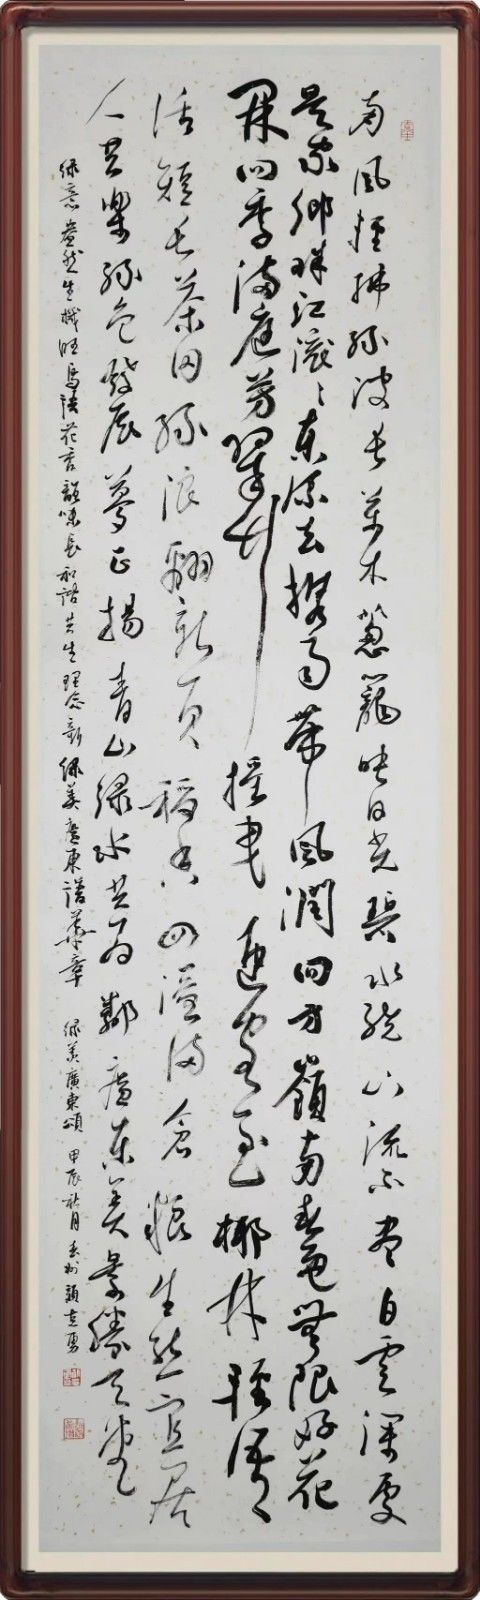 南風輕拂綠波長萬木蔥蘢映日光碧水繞山流不盡白雲深處
是家鄉珠江滾滾東流去攜雨帶風潤四方嶺南春色無限好花
開四季滿庭芳翠竹搖曳迎客至椰林輕語
話短長茶田綠浪翻新頁稻香四溢滿倉糧生態宜居
人共樂綠色發展夢正揚青山綠水共為鄰廣東美景勝天堂
綠意盎然生機旺鳥語花香韻味長和諧共生理念新綠美廣東譜華章 綠美廣東頌 甲辰秋月